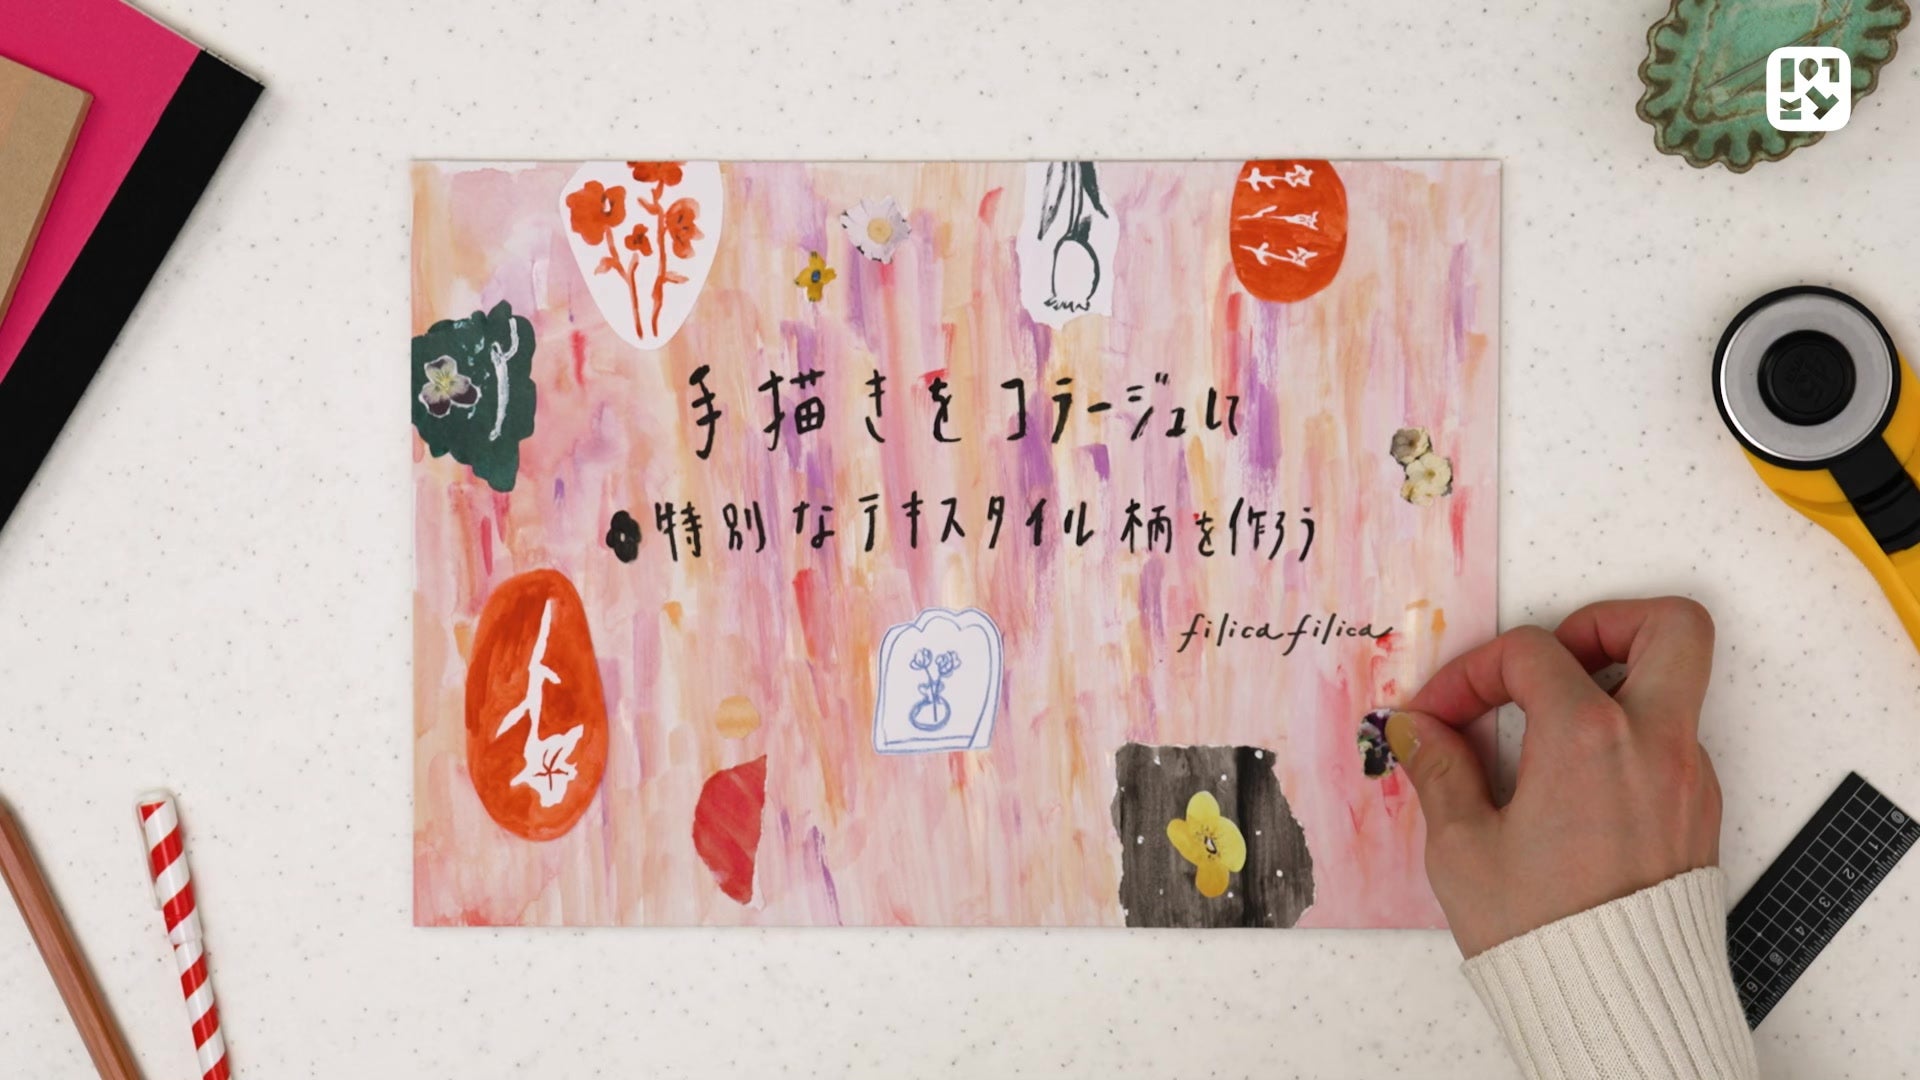 手描きをコラージュして
特別なテキスタイル柄を作ろう
filicafilica